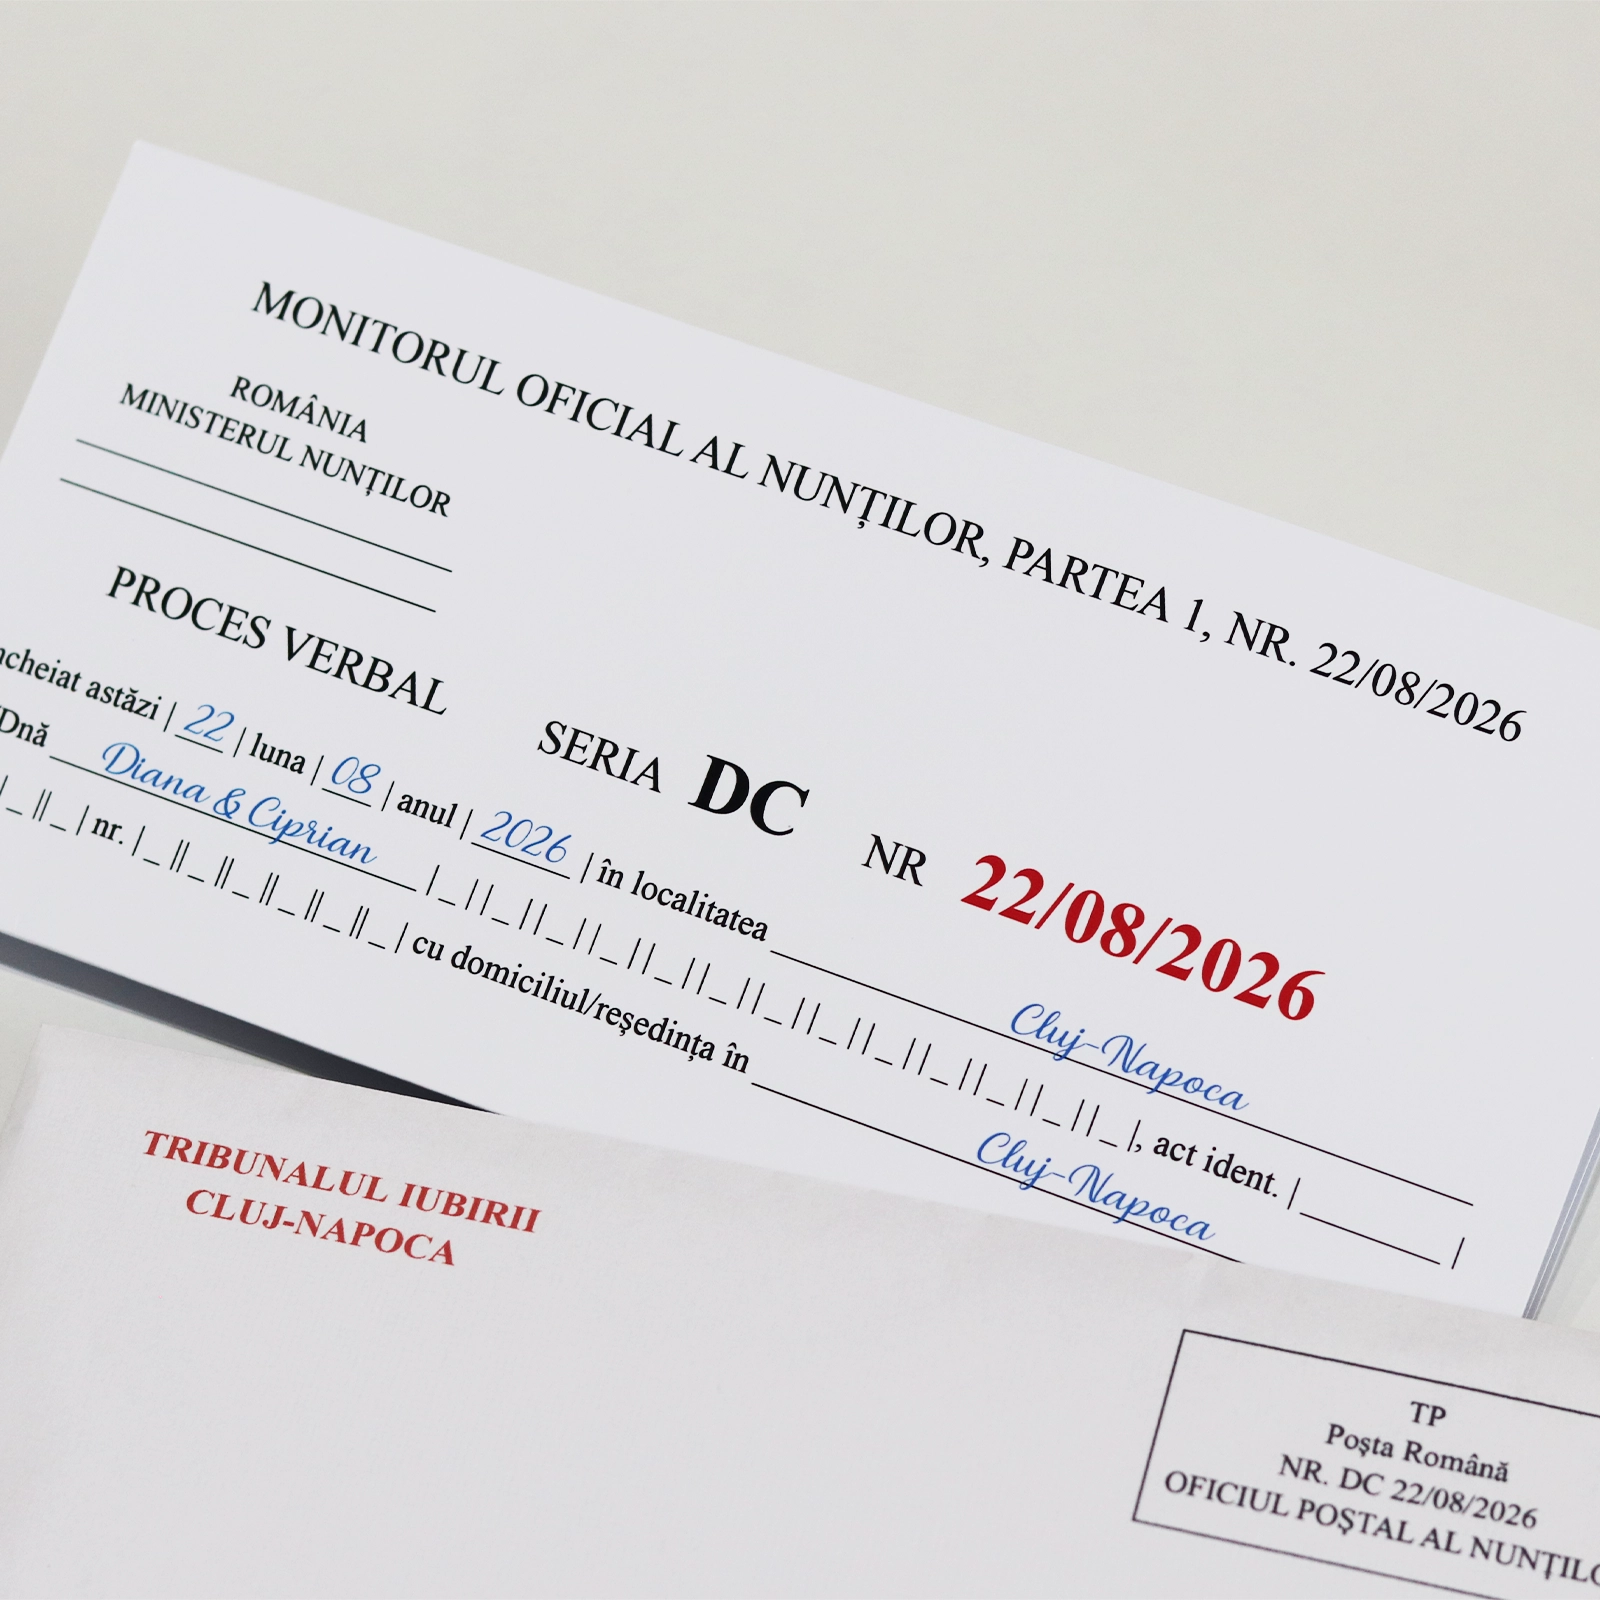 MONITORUL OFICIAL AL NUNȚILOR, PARTEA 1, NR. 22/08/2026
ROMÂNIA
MINISTERUL NUNȚILOR
PROCES VERBAL SERIA DC NR 22/08/2026
astăzi | 22 | luna | 08 | anul | 2026 | în localitatea Cluj-Napoca
Dnă Diana & Ciprian |_||_||_||_||_||_||_||_||_||_||_||_||_|, act ident. |______|
|_||_| nr. |_||_||_||_||_||_| cu domiciliul/reședința în Cluj-Napoca
TRIBUNALUL IUBIRII
CLUJ-NAPOCA
TP
Poșta Română
NR. DC 22/08/2026
OFICIUL POȘTAL AL